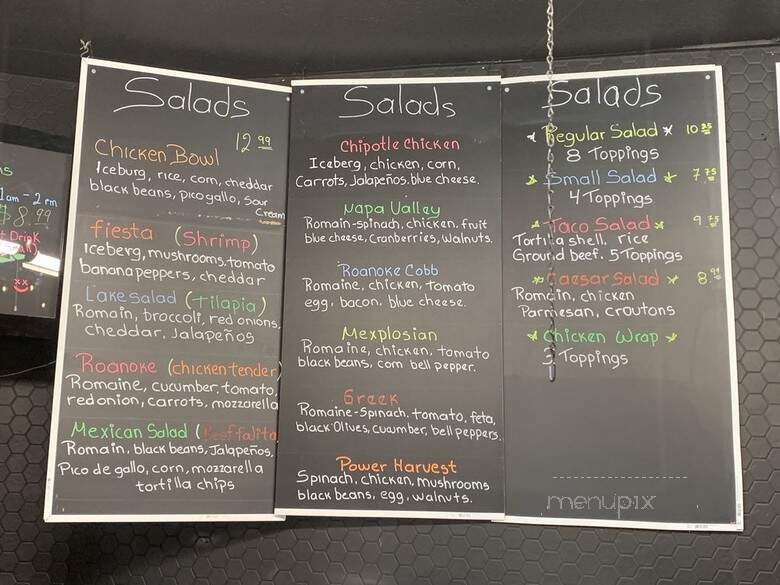 1am - 2pm
$8.99
Drink
Salads
12 99
Chicken Bowl
Iceburg, rice, corn, cheddar
black beans, pico gallo, sour
Cream
fiesta (Shrimp)
Iceberg, mushrooms, tomato
banana peppers, cheddar
Lake salad (tilapia)
Romain, broccoli, red onions,
cheddar, Jalapeños
Roanoke (chicken tender)
Romaine, cucumber, tomato,
red onion, carrots, mozzarella
Mexican Salad (Beef fajita
Romain, black beans, Jalapeños,
Pico de gallo, corn, mozzarella
tortilla chips
Salads
Chipotle Chicken
Iceberg, chicken, corn,
Carrots, Jalapeños, blue cheese.
Napa Valley
Romain-spinach, chicken, fruit
blue cheese, Cranberries, walnuts.
Roanoke Cobb
Romaine, chicken, tomato
egg, bacon, blue cheese.
Mexplosian
Romaine, chicken, tomato
black beans, corn bell pepper.
Greek
Romaine-Spinach, tomato, feta,
black Olives, cucumber, bell peppers.
Power Harvest
Spinach, chicken, mushrooms
black beans, egg, walnuts.
Salads
Regular Salad 10 25
8 Toppings
Small Salad 7.75
4 Toppings
Taco Salad 9 75
Tortilla shell, rice
Ground beef. 5 Toppings
Caesar Salad 8.99
Romain, chicken
Parmesan, croutons
Chicken Wrap
3 Toppings
menupix